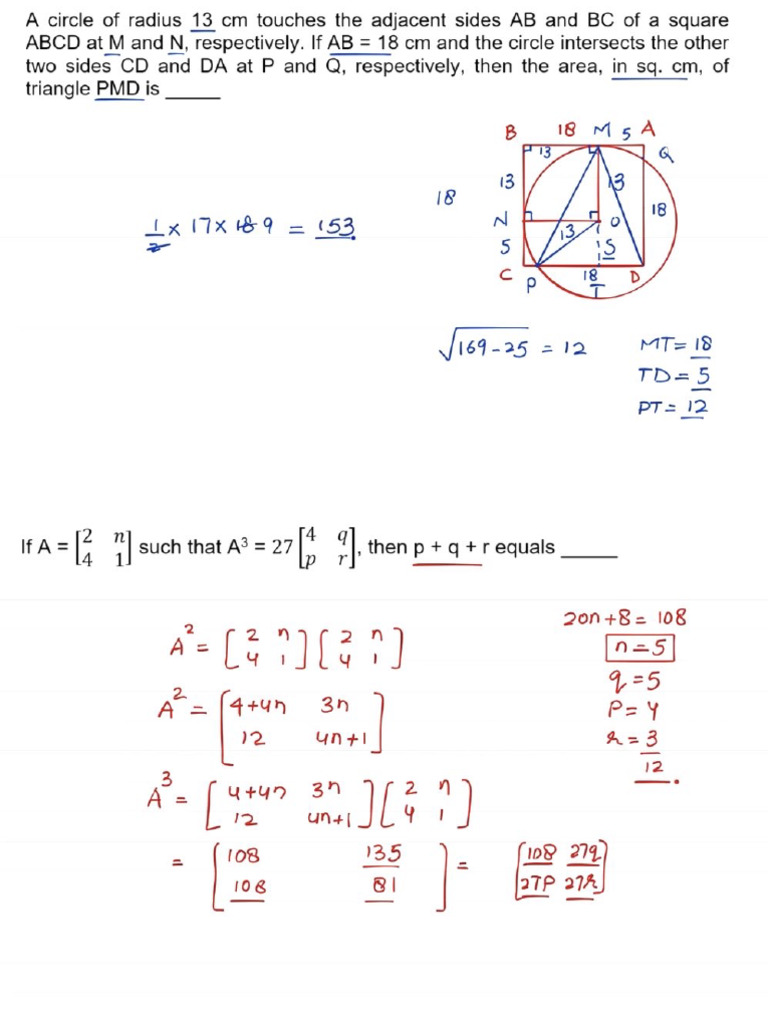 A circle of radius 13 cm touches the adjacent sides AB and BC of a square
ABCD at M and N, respectively. If AB = 18 cm and the circle intersects the other
two sides CD and DA at P and Q, respectively, then the area, in sq. cm, of
triangle PMD is _____
B 18 M 5 A
13 Q
13 13
18
18
N O
13
5 5
C P 18 D
T
1/2 × 17 × 18 9 = 153
√169-25 = 12
MT = 18
TD = 5
PT = 12
If A = [2 n; 4 1] such that A³ = 27 [4 q; p r], then p + q + r equals _____
A² = [2 n; 4 1] [2 n; 4 1]
A² = [4+4n 3n; 12 4n+1]
A³ = [4+4n 3n; 12 4n+1] [2 n; 4 1]
= [108 135; 108 81] = [108 27q; 27p 27r]
20n+8 = 108
n = 5
q = 5
p = 4
r = 3
12.